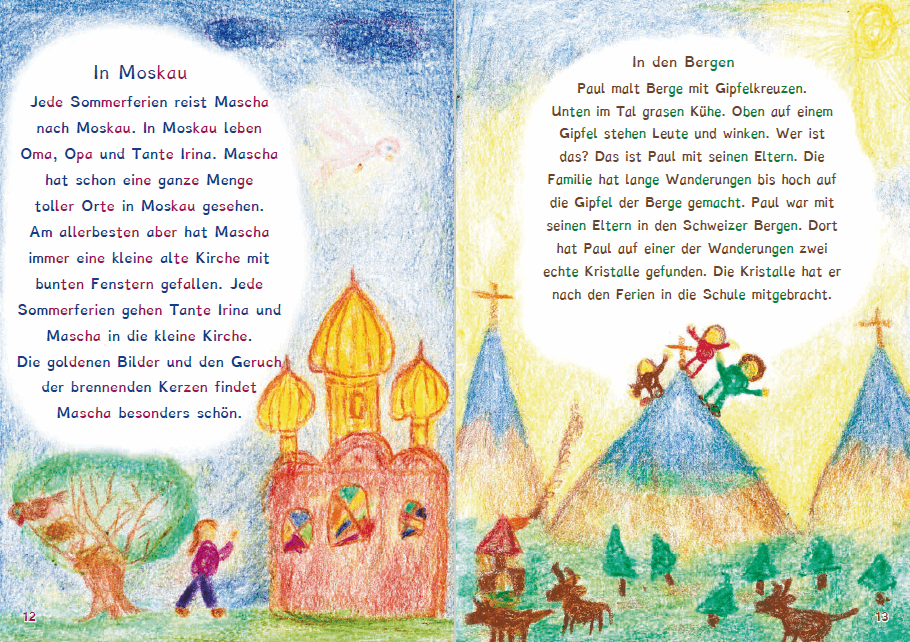 In Moskau
Jede Sommerferien reist Mascha
nach Moskau. In Moskau leben
Oma, Opa und Tante Irina. Mascha
hat schon eine ganze Menge
toller Orte in Moskau gesehen.
Am allerbesten aber hat Mascha
immer eine kleine alte Kirche mit
bunten Fenstern gefallen. Jede
Sommerferien gehen Tante Irina und
Mascha in die kleine Kirche.
Die goldenen Bilder und den Geruch
der brennenden Kerzen findet
Mascha besonders schön.
12
In den Bergen
Paul malt Berge mit Gipfelkreuzen.
Unten im Tal grasen Kühe. Oben auf einem
Gipfel stehen Leute und winken. Wer ist
das? Das ist Paul mit seinen Eltern. Die
Familie hat lange Wanderungen bis hoch auf
die Gipfel der Berge gemacht. Paul war mit
seinen Eltern in den Schweizer Bergen. Dort
hat Paul auf einer der Wanderungen zwei
echte Kristalle gefunden. Die Kristalle hat er
nach den Ferien in die Schule mitgebracht.
13